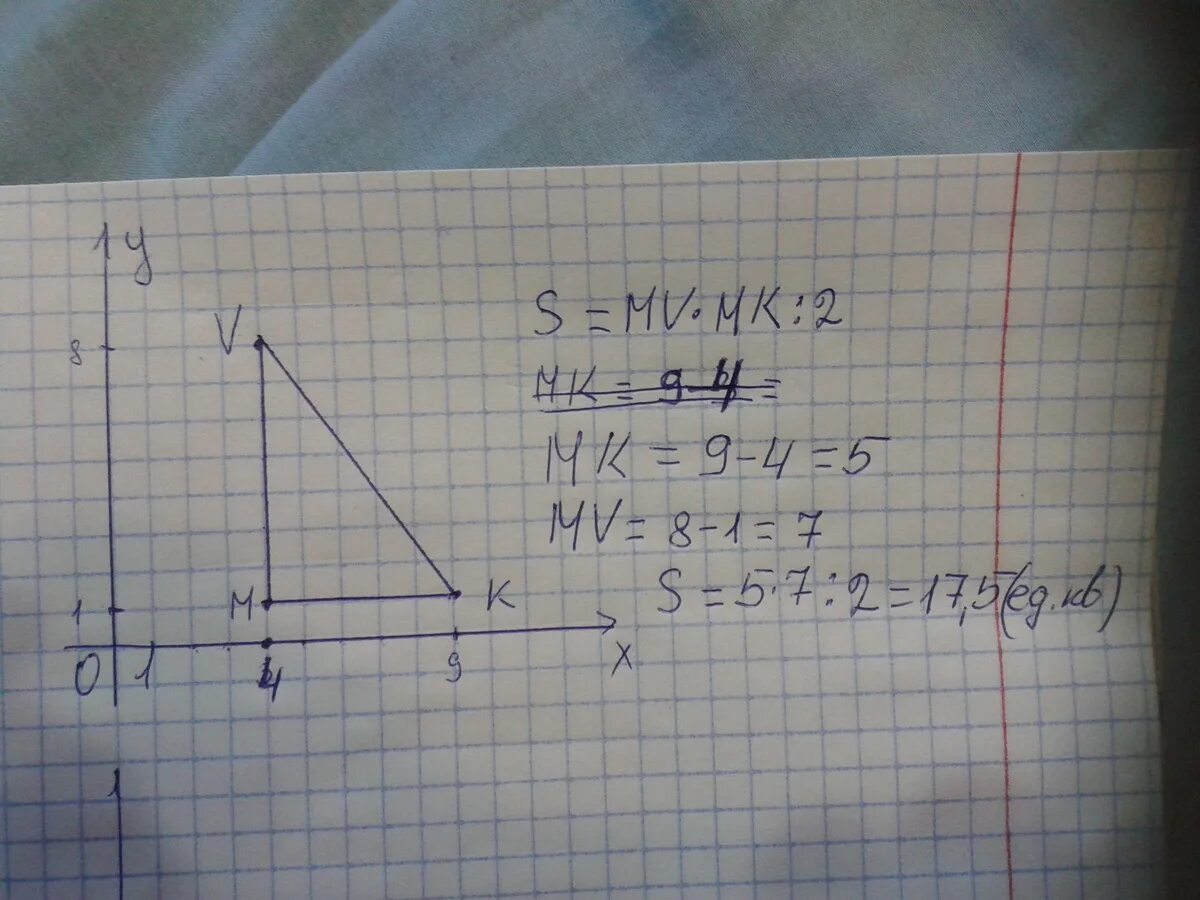 y
V
8
S = MV · MK : 2
MK = 9 - 4 =
MK = 9 - 4 = 5
MV = 8 - 1 = 7
S = 5 · 7 : 2 = 17,5 (ед. кв)
1
M
K
0
1
4
9
x